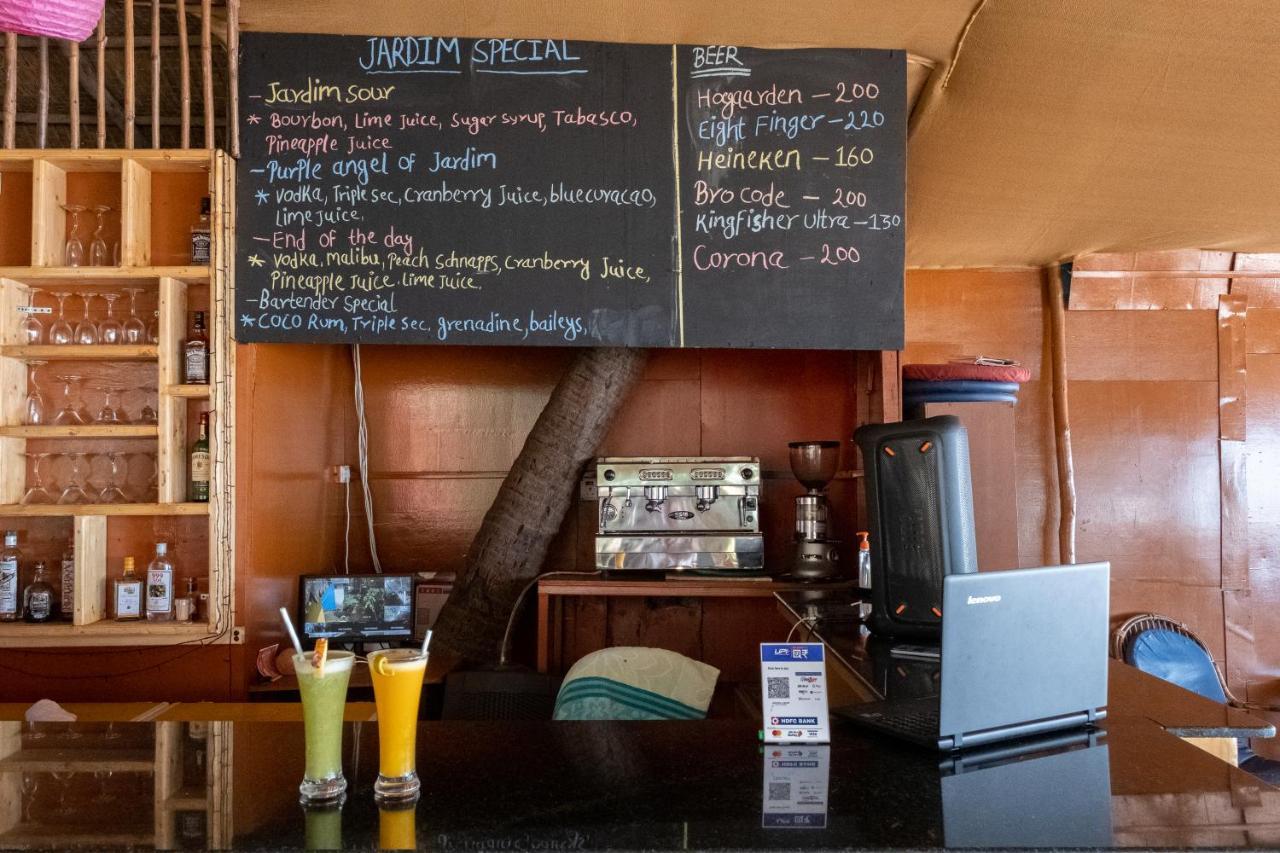 JARDIM SPECIAL
- Jardim sour
* Bourbon, Lime Juice, Sugar syrup, Tabasco,
Pineapple Juice
- Purple angel of Jardim
* vodka, Triple sec, Cranberry Juice, bluecuracao,
Lime Juice,
- End of the day
* vodka, Malibu, Peach schnapps, Cranberry Juice,
Pineapple Juice, Lime Juice.
- Bartender Special
* COCO Rum, Triple sec, grenadine, baileys,
BEER
Hoegaarden - 200
Eight Finger - 220
Heineken - 160
Bro code - 200
Kingfisher Ultra - 130
Corona - 200
lenovo
UPI
HDFC BANK